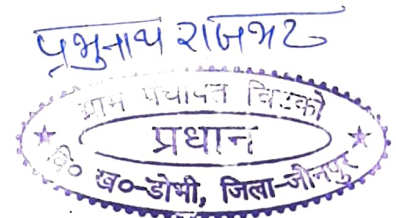 प्रभुनाथ राजभर
ग्राम पंचायत चिटको
प्रधान
वि० ख०-डोभी, जिला-जौनपुर